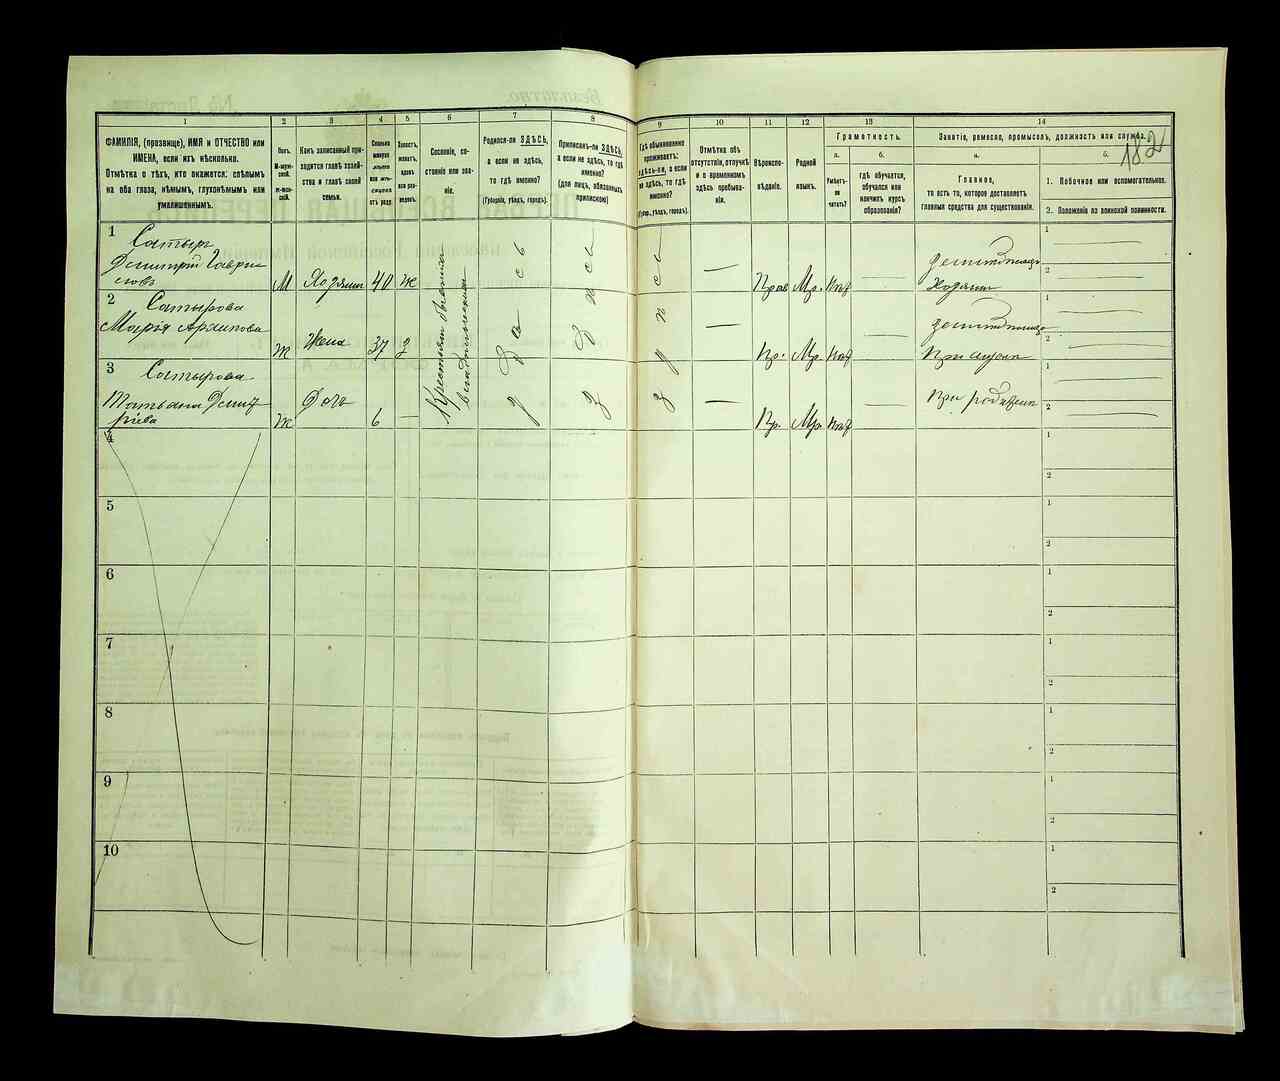 182
1 2 3 4 5 6 7 8 9 10 11 12 13 14
ФАМИЛІЯ, (прозвище), ИМЯ и ОТЧЕСТВО или
ИМЕНА, если ихъ нѣсколько.
Отмѣтка о тѣхъ, кто окажется: слѣпымъ
на оба глаза, нѣмымъ, глухонѣмымъ или
умалишеннымъ.
Полъ.
М-муж-
ской.
Ж-жен-
скій.
Какъ записанный при-
ходится главѣ хозяй-
ства и главѣ своей
семьи.
Сколько
минуло
лѣтъ
или мѣ-
сяцевъ
отъ роду.
Холостъ,
женатъ,
вдовъ
или раз-
веденъ.
Сословіе, со-
стояніе или зва-
ніе.
Родился-ли ЗДѢСЬ,
а если не здѣсь,
то гдѣ именно?
(Губернія, уѣздъ, городъ).
Приписанъ-ли ЗДѢСЬ,
а если не здѣсь, то гдѣ
именно?
(для лицъ, обязанныхъ
припискою)
Гдѣ обыкновенно
проживаетъ:
здѣсь-ли, а если
не здѣсь, то гдѣ
именно?
(Губерн., уѣздъ, городъ).
Отмѣтка объ
отсутствіи, отлучкѣ
и о временномъ
здѣсь пребыва-
ніи.
Вѣроиспо-
вѣданіе.
Родной
языкъ.
Грамотность.
а.
Умѣетъ-
ли
читать?
б.
гдѣ обучается,
обучался или
кончилъ курсъ
образованія?
Занятіе, ремесло, промыселъ, должность или служба.
а.
Главное,
то есть то, которое доставляетъ
главныя средства для существованія.
б.
1. Побочное или вспомогательное.
2. Положеніе по воинской повинности.
1
Сатыръ
Дмитрій Гаври
ловъ
М
Хозяинъ
40
ж
Крестьян бывших
Здѣсь
Здѣсь
Здѣсь
—
Прав
Мр.
—
Хозяин
1
2
2
Сатырова
Марія Архипова
Ж
Жена
37
—
Пр.
Мр.
—
При мужѣ
1
2
3
Сатырова
Татьяна Дмит
ріева
Ж
Дочь
6
—
—
Пр.
Мр.
При родителѣ
1
2
4
1
2
5
1
2
6
1
2
7
1
2
8
1
2
9
1
2
10
1
2